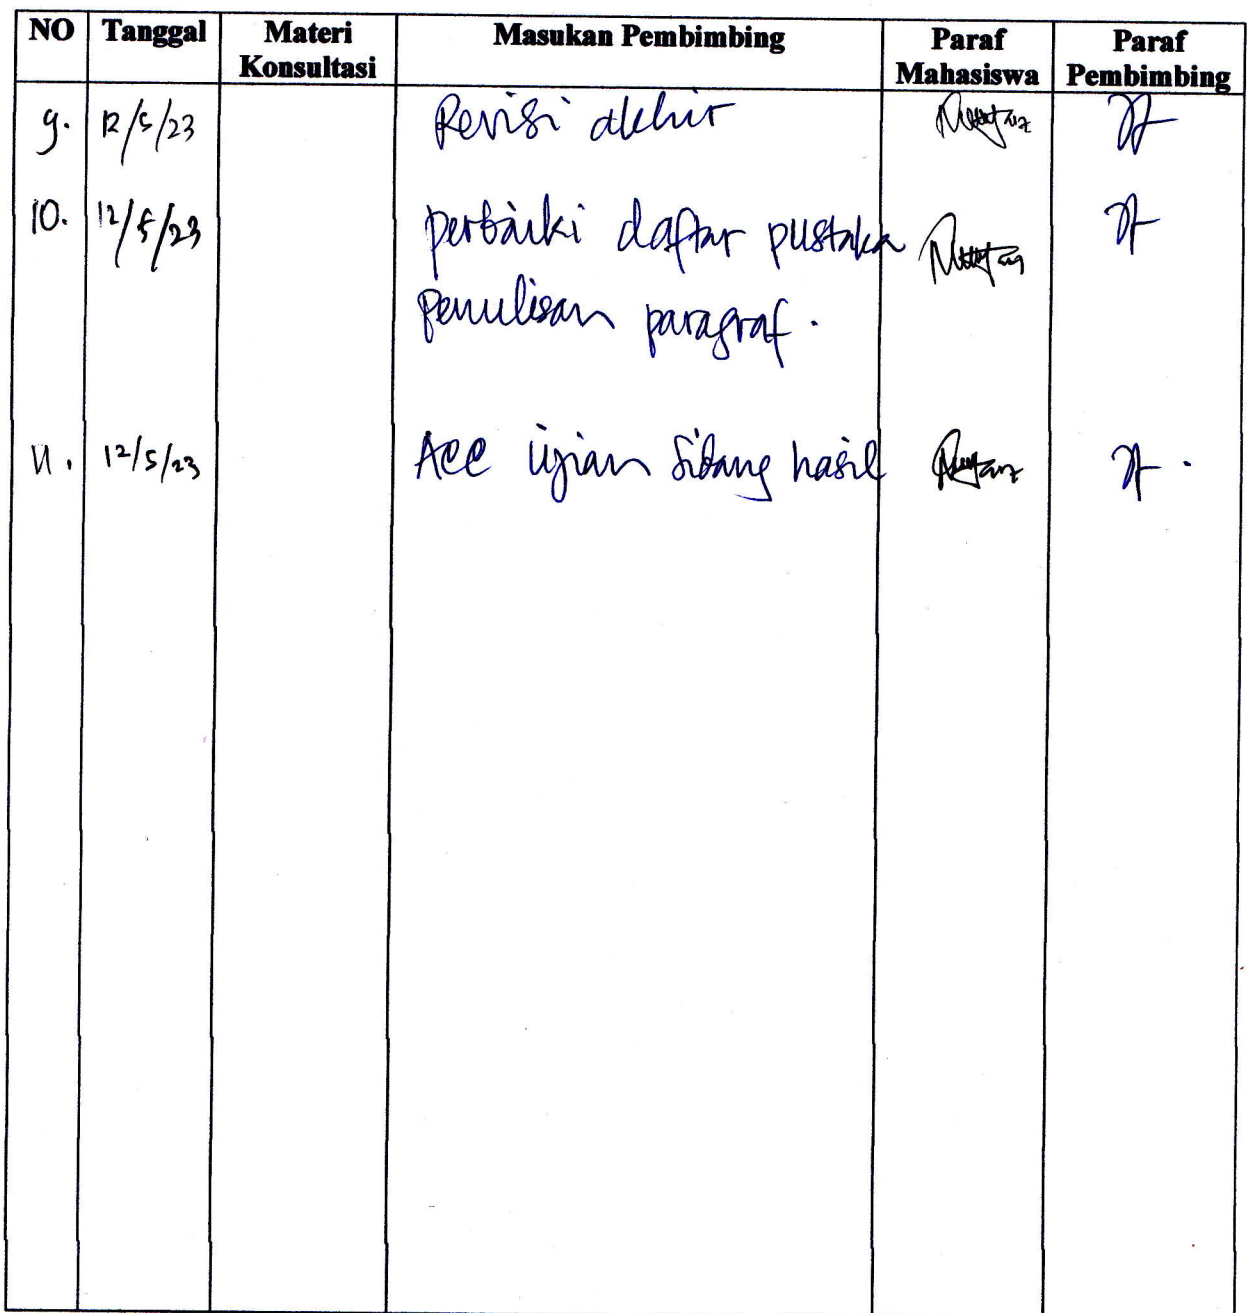 NO Tanggal Materi Konsultasi Masukan Pembimbing Paraf Mahasiswa Paraf Pembimbing
9. 12/5/23 Revisi akhir
10. 12/5/23 perbaiki daftar pustaka
penulisan paragraf.
11. 12/5/23 Acc ujian sidang hasil